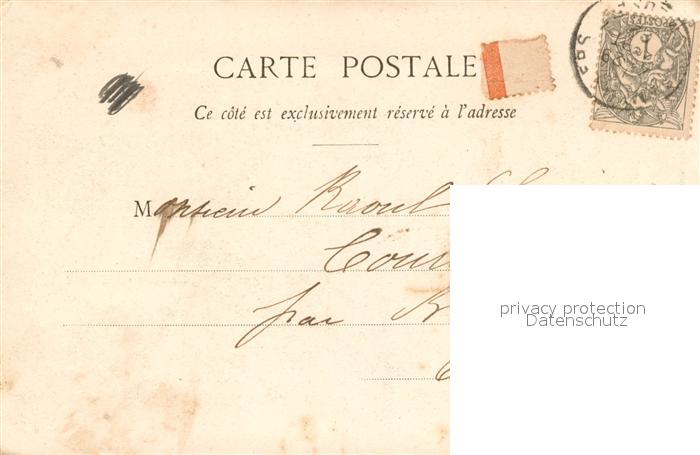 CARTE POSTALE
Ce côté est exclusivement réservé à l'adresse
Monsieur Raoul
par
privacy protection
Datenschutz